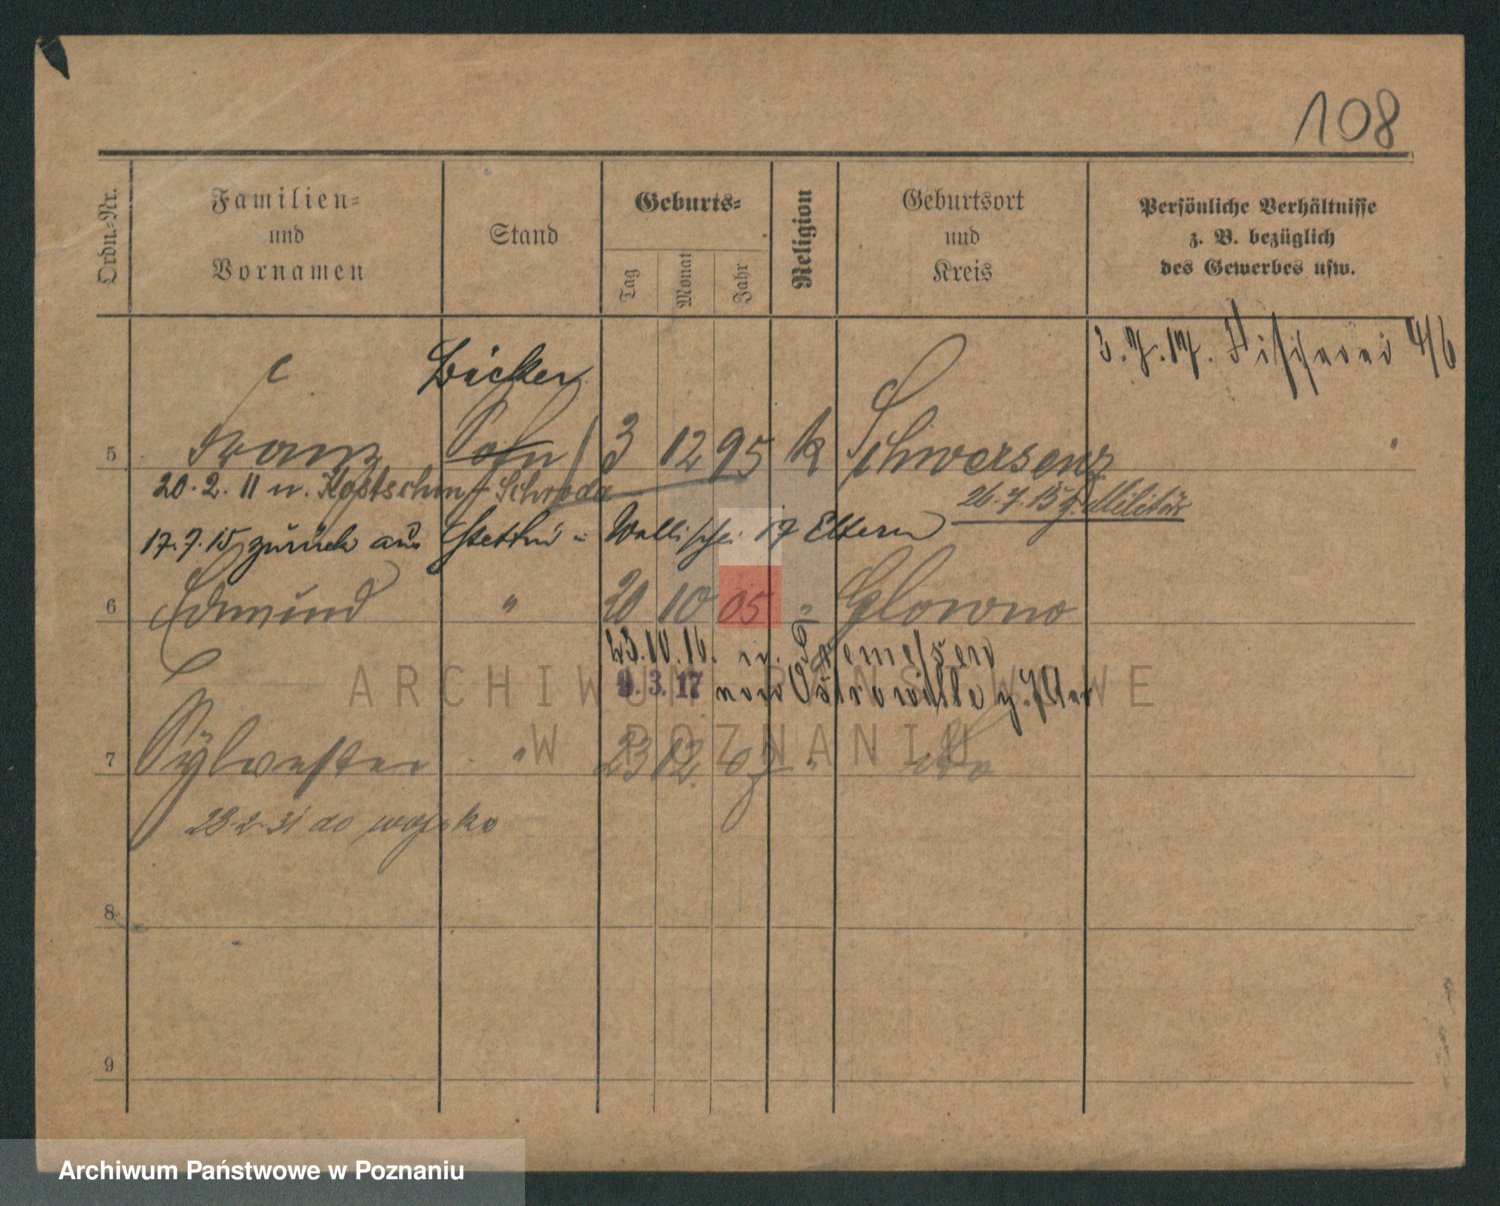 108
Ordn.-Nr.
Familien-
und
Vornamen
Stand
Geburts-
Tag
Monat
Jahr
Religion
Geburtsort
und
Kreis
Persönliche Verhältnisse
z. B. bezüglich
des Gewerbes usw.
3.7.17. Fischerei 4/6
Bäcker
5 Franz Sohn 3 12 95 k Schwersenz
20.2.11 n. Kostschin Schroda
26.7.15 z. Militär
17.7.15 zurück aus Stettin Wallischei 17 Eltern
6 Edmund " 20 10 05 " Glowno
23.10.16. n. Tremessen
9.3.17 von Ostrowitte
ARCHIWUM PAŃSTWOWE
W POZNANIU
7 Sylvester " 23 12. 07 "
28-2-31 do wojska
8
9
Archiwum Państwowe w Poznaniu